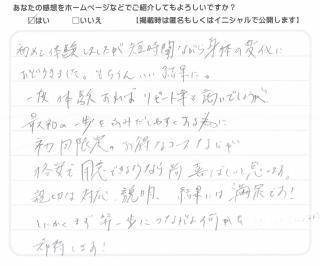 あなたの感想をホームページなどでご紹介してもよろしいですか？
☑はい □いいえ 【掲載時は匿名もしくはイニシャルで公開します】
初めて体験しましたが短時間ながら身体の変化に
おどろきました。もちろんいい結果に。
一度体験すればリピート率も高いでしょうが
最初の一歩をふみだしやすくする為に
初回限定のお得なコースなどが
格安で用意できるような尚喜ばしいと思います。
親切な対応、説明、結果には満足です！
とにかくまず第一歩につながる何かを
期待します！